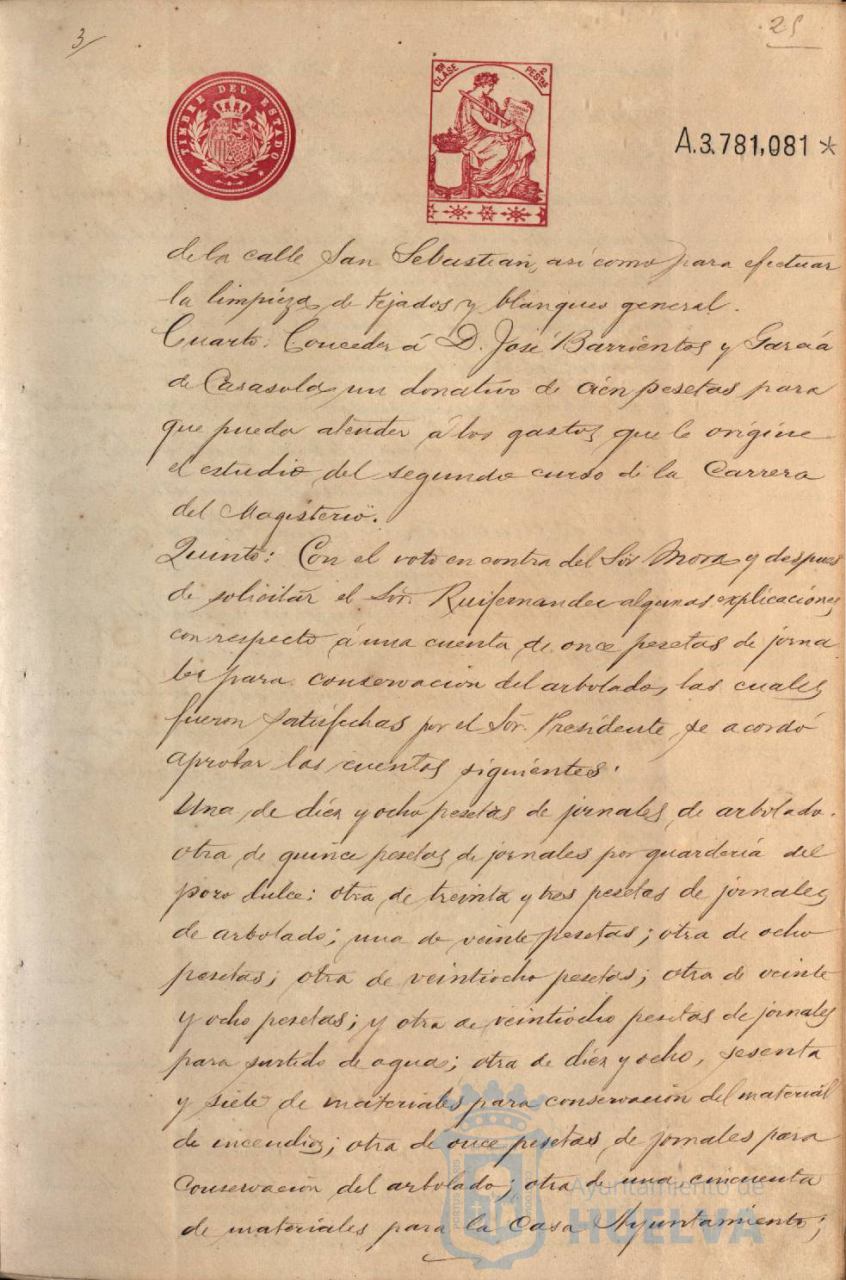 3/
25
TIMBRE DEL ESTADO
10ª CLASE
2 PESTAS
A.3.781,081 *
de la calle San Sebastian, asi como para efectuar
la limpieza de tejados y blanqueo general.
Cuarto: Conceder á D. José Barrientos y García
de Casasola un donativo de cien pesetas para
que pueda atender á los gastos que le origine
el estudio del segundo curso de la Carrera
del Magisterio.
Quinto: Con el voto en contra del Sór Mora y despues
de solicitar el Sór. Ruifernandez algunas explicaciones
con respecto á una cuenta de once pesetas de jorna
les para conservación del arbolado, las cuales
fueron satisfechas por el Sór. Presidente, se acordó
aprobar las cuentas siguientes:
Una de diez y ocho pesetas de jornales de arbolado.
otra de quince pesetas de jornales por guardería del
pozo dulce; otra de treinta y tres pesetas de jornales
de arbolado; una de veinte pesetas; otra de ocho
pesetas; otra de veintiocho pesetas; otra de veinte
y ocho pesetas; y otra de veintiocho pesetas de jornales
para surtido de agua; otra de diez y ocho, sesenta
y siete de materiales para conservación del material
de incendios; otra de once pesetas de jornales para
conservación del arbolado; otra de una, cincuenta
de materiales para la Casa Ayuntamiento;
Ayuntamiento de
HUELVA